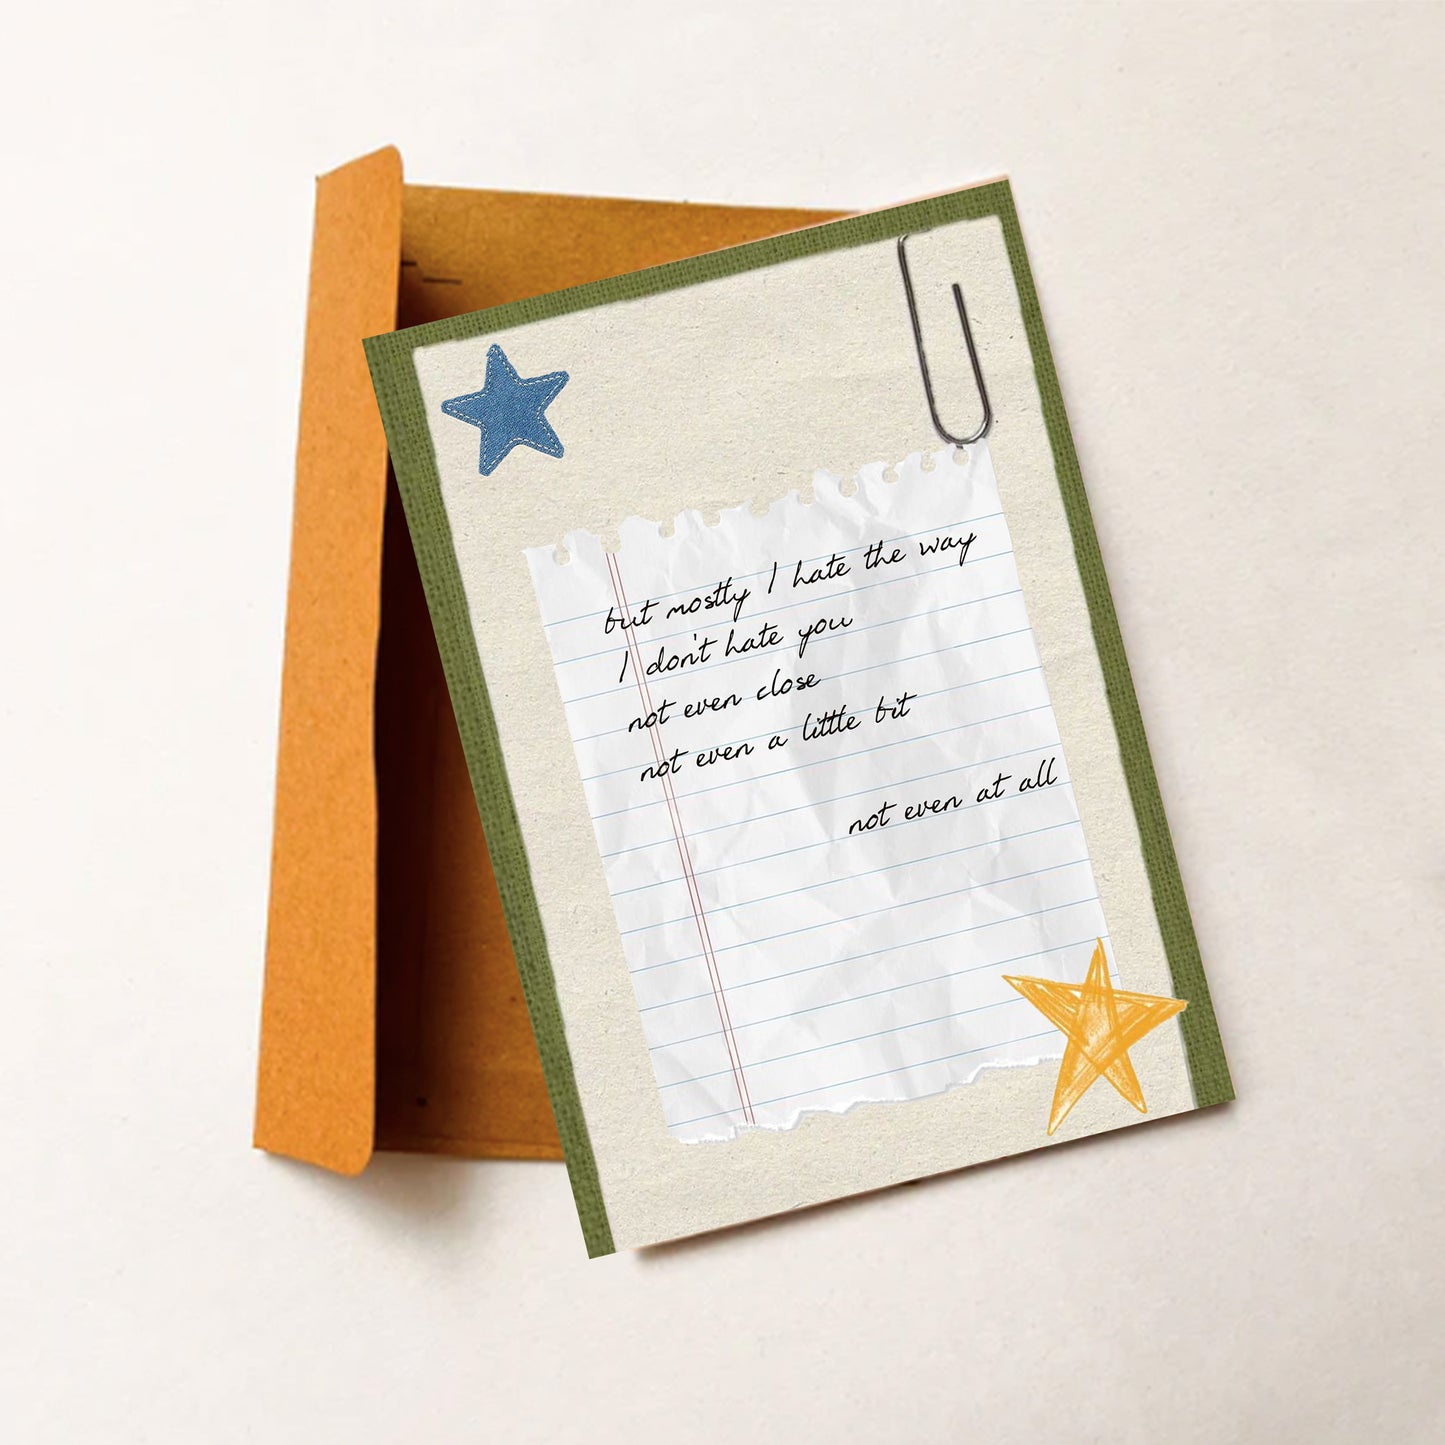 but mostly I hate the way
I don't hate you
not even close
not even a little bit
not even at all